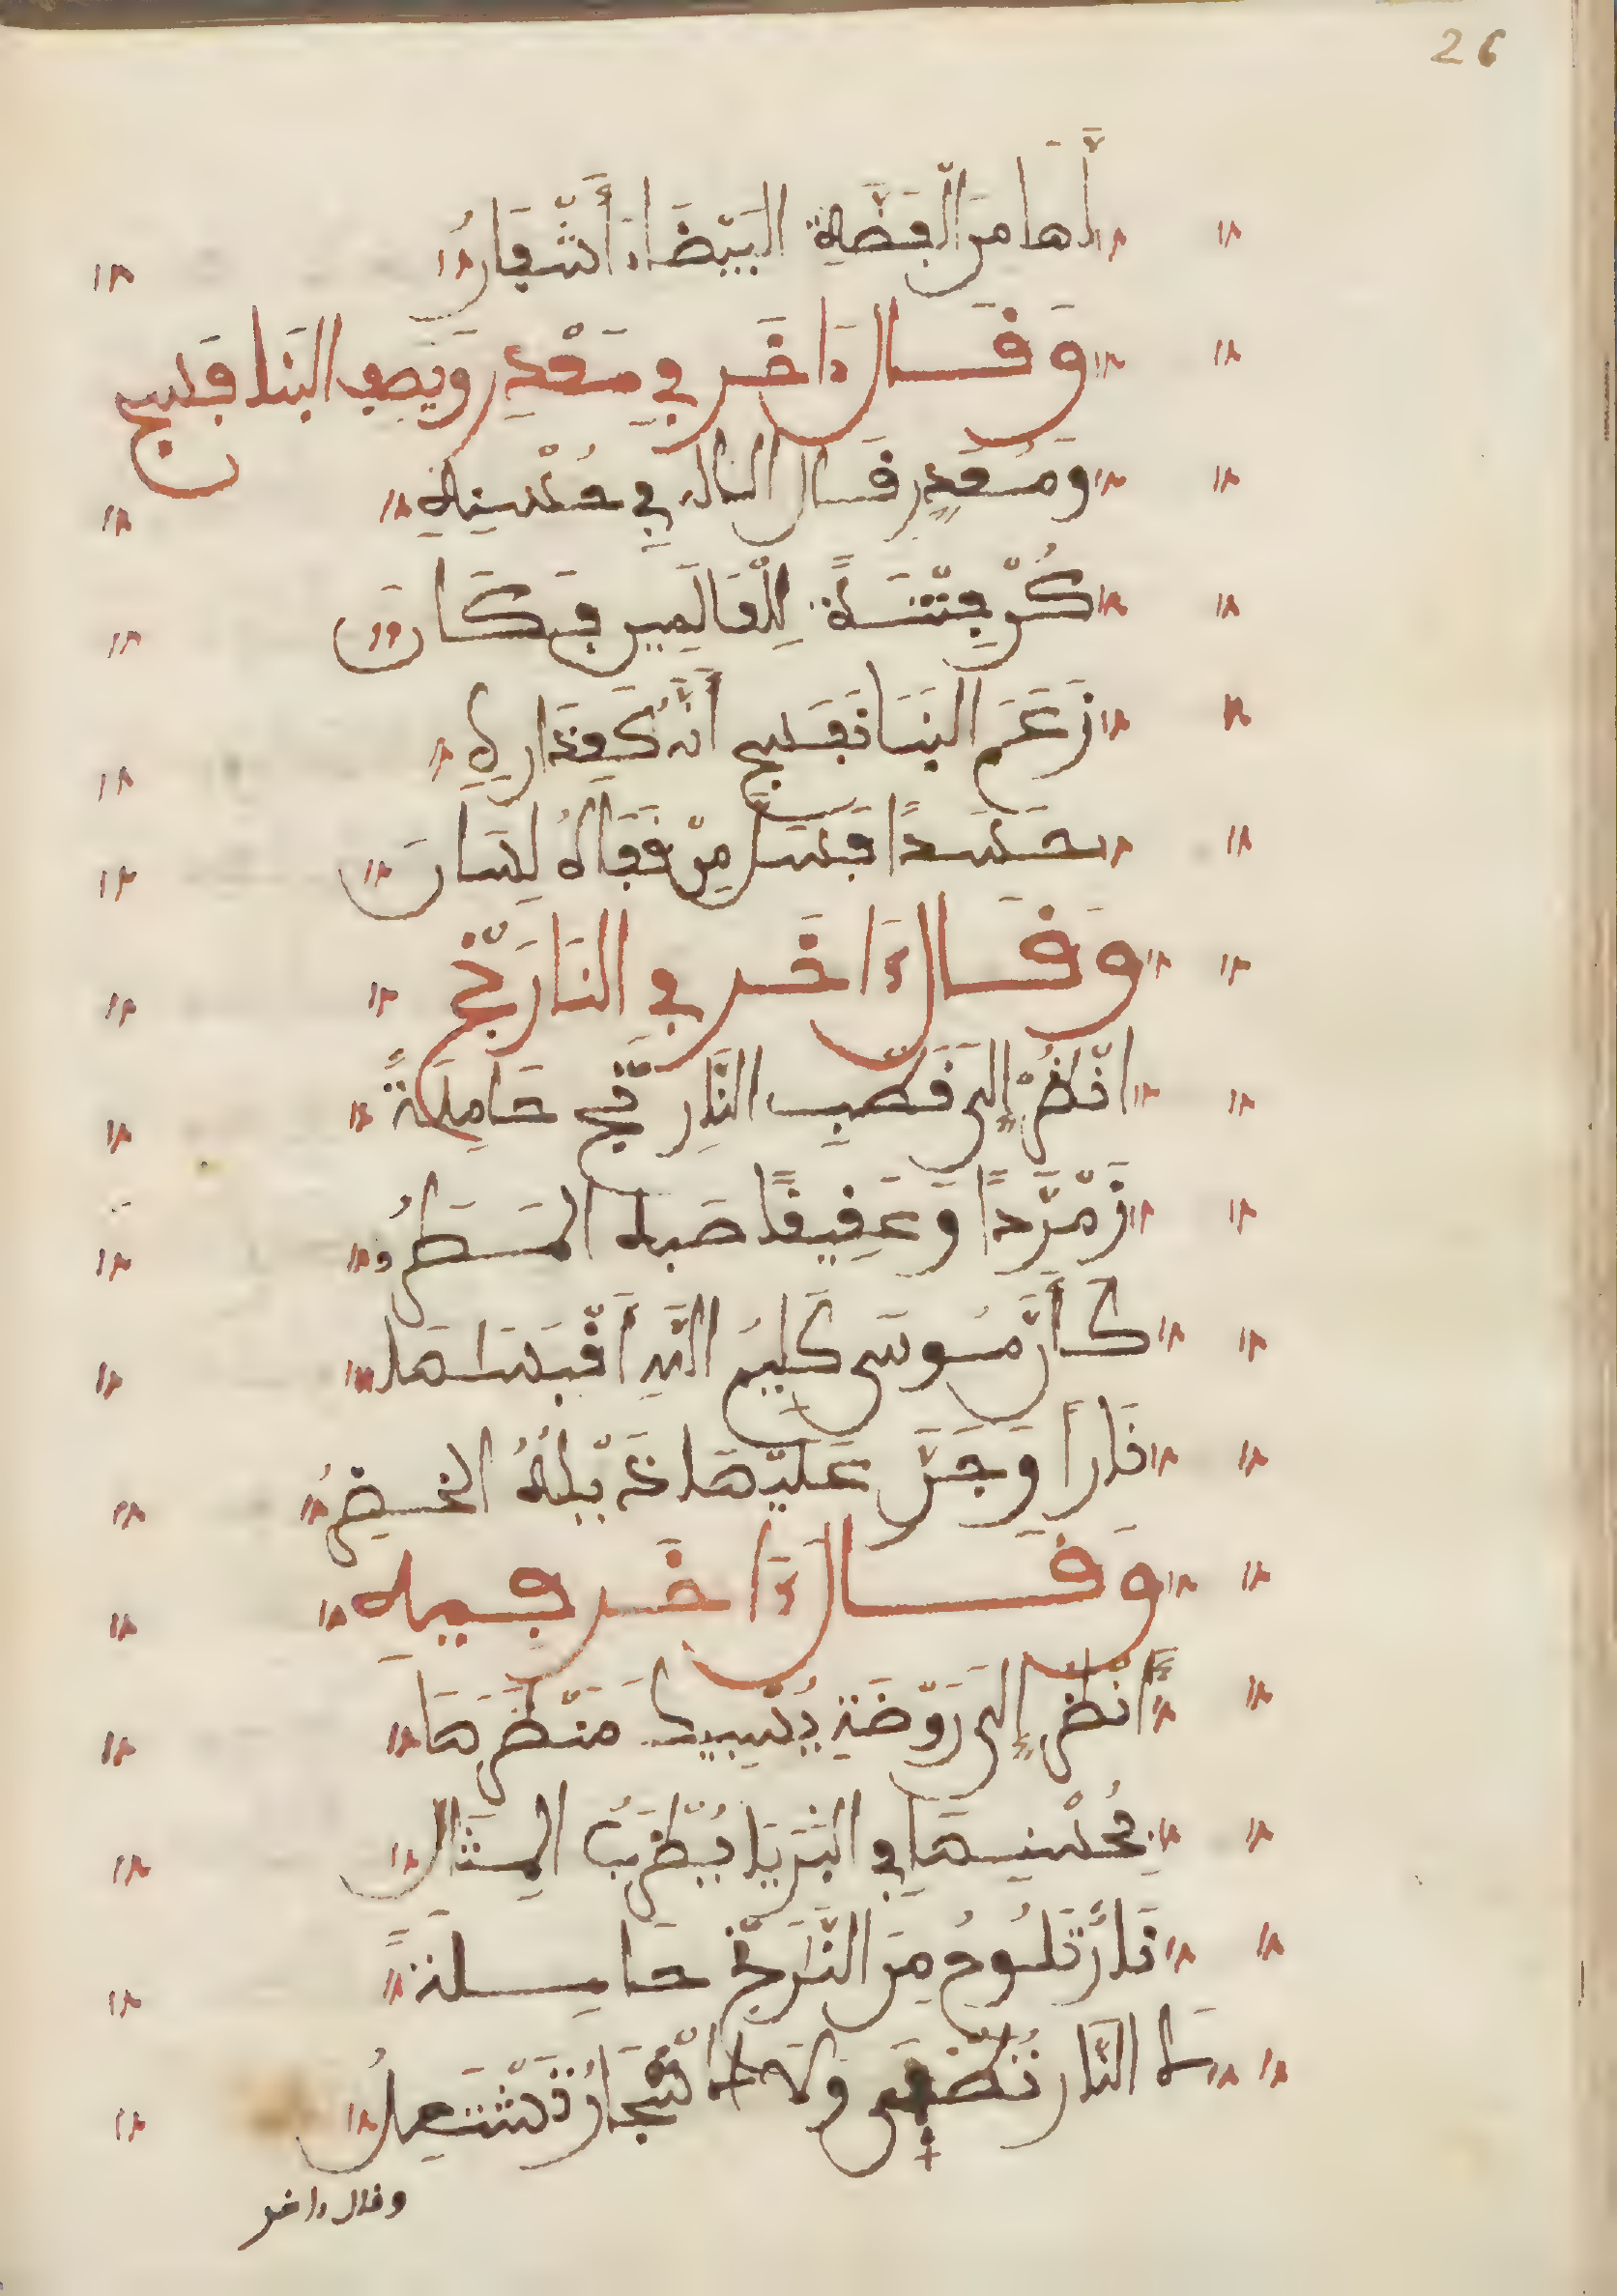 26
لها من الفضة البيضاء أشفار
وقال ءاخر في معذر ويصف البنفسج
ومعذر قال الاله في حسنه
كن فتنة للعالمين فكان
زعم البنفسج أنه كعذاره
حسدا فسل من قفاه لسان
وقال ءاخر في النارنج
انظر إلى قضب النارنج حاملة
زمردا وعقيقا صبه المطر
كأن موسى كليم الله أقبسها
نارا وجر عليها ذيله الخضر
وقال ءاخر فيه
أنظر إلى روضة يسبيك منظرها
بحسنها في البرايا يضرب المثل
نار تلوح من النارنج حاملة
لا النار تطفى ولا الأشجار تشتعل
وقال ءاخر